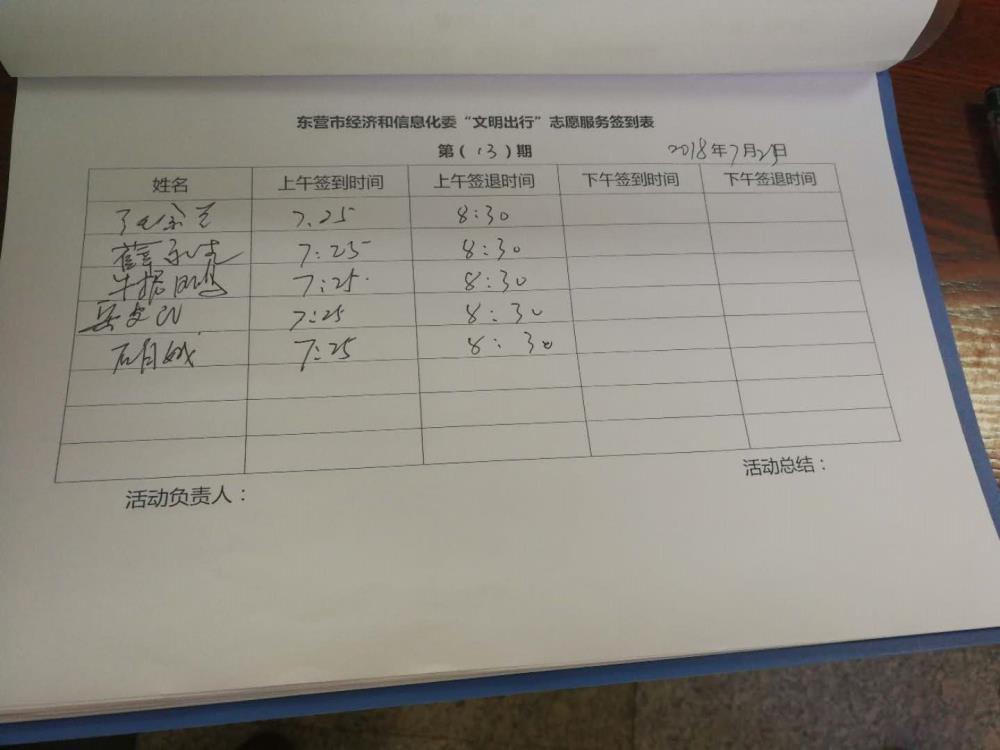 东营市经济和信息化委“文明出行”志愿服务签到表
第（13）期 2018年7月25日
姓名 上午签到时间 上午签退时间 下午签到时间 下午签退时间
7.25 8:30
7:25 8:30
牛振鹏 7:25. 8:30
7:25 8:30
石月娥 7:25 8:30
活动负责人： 活动总结：